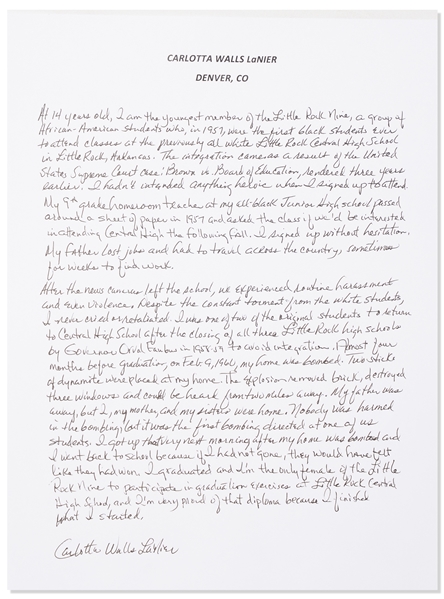 CARLOTTA WALLS LaNIER
DENVER, CO
At 14 years old, I am the youngest member of the Little Rock Nine, a group of
African-American students who, in 1957, were the first black students ever
to attend classes at the previously all white Little Rock Central High School
in Little Rock, Arkansas. The integration came as a result of the United
States Supreme Court case: Brown vs Board of Education, rendered three years
earlier. I hadn't intended anything heroic when I signed up to attend.
My 9th grade homeroom teacher at my all-black Junior High school passed
around a sheet of paper in 1957 and asked the class if we'd be interested
in attending Central High the following fall. I signed up without hesitation.
My father lost jobs and had to travel across the country, sometimes
for weeks to find work.
After the news cameras left the school, we experienced routine harassment
and even violence. Despite the constant torment from the white students,
I never cried or retaliated. I was one of two of the original students to return
to Central High School after the closing of all three Little Rock high schools
by Governor Orval Faubus in 1958-59 to avoid integration. Almost four
months before graduation, on Feb 9, 1960, my home was bombed. Two sticks
of dynamite were placed at my home. The explosion removed brick, destroyed
three windows and could be heard from two miles away. My father was
away, but I, my mother, and my sisters were home. Nobody was harmed
in the bombing, but it was the first bombing directed at one of us
students. I got up that very next morning after my home was bombed and
I went back to school because if I had not gone, they would have felt
like they had won. I graduated and I'm the only female of the Little
Rock Nine to participate in graduation exercises at Little Rock Central
High School, and I'm very proud of that diploma because I finished
what I started.
Carlotta Walls LaNier